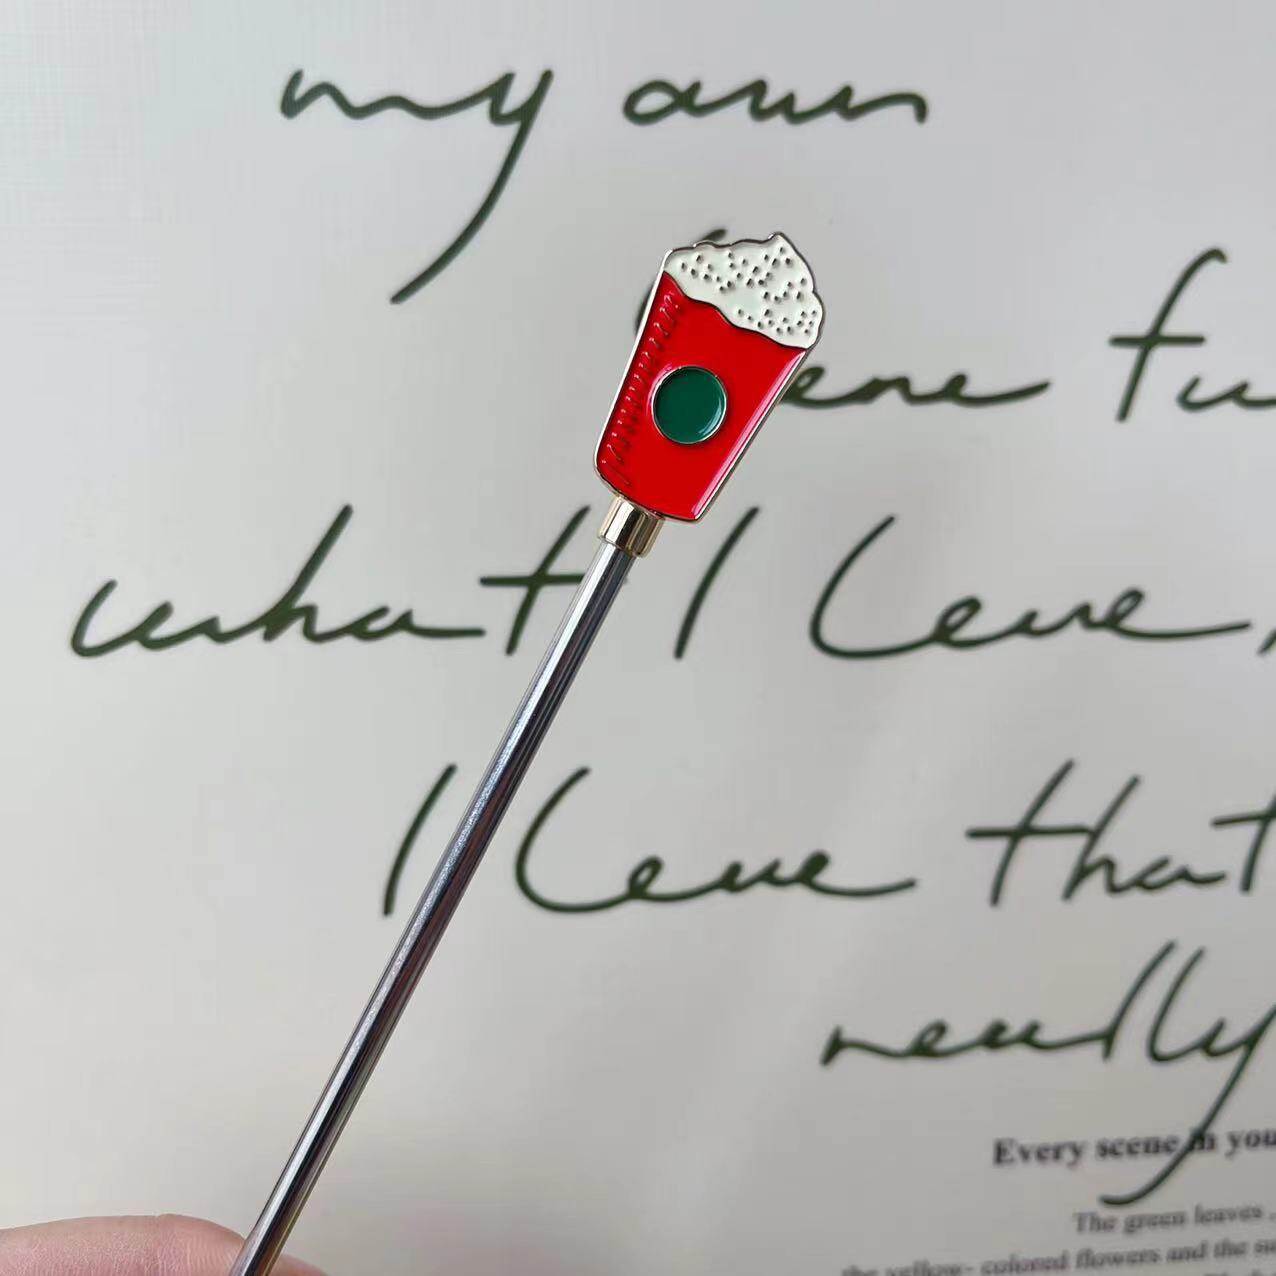 my own
fu
what I love,
I love that
really
Every scene in you
The green leaves
the yellow- colored flowers and the su